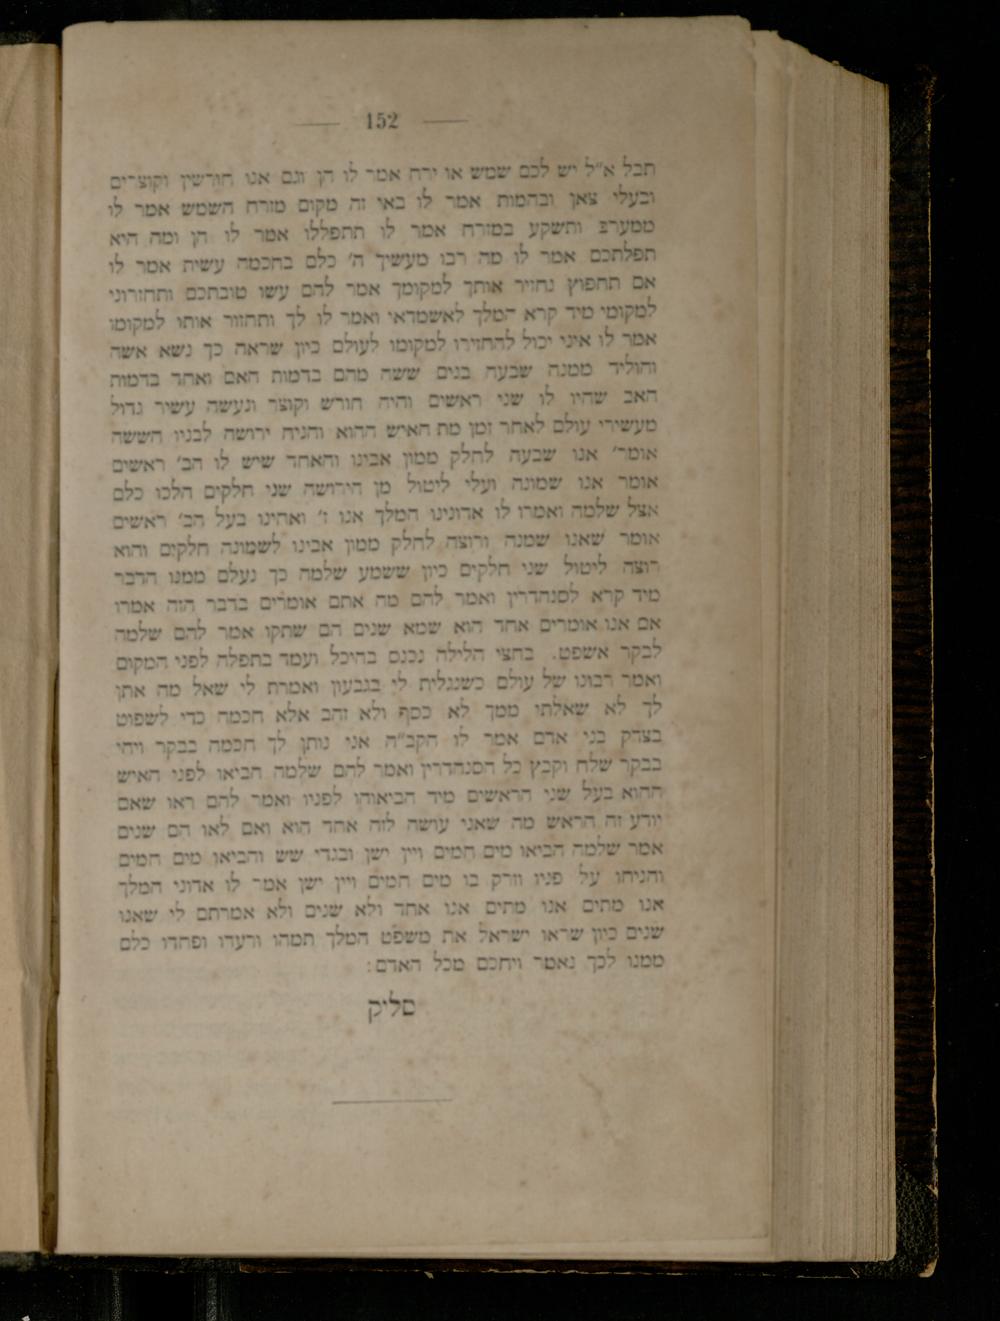 — 152 —
תבל א״ל יש לכם שמש או ירח אמר לו הן וגם אנו חורשין וקוצרים
ובעלי צאן ובהמות אמר לו באי זה מקום מזרח השמש אמר לו
ממערב ותשקע במזרח אמר לו תתפללו אמר לו הן ומה היא
תפלתכם אמר לו מה רבו מעשיך ה׳ כלם בחכמה עשית אמר לו
אם תחפוץ נחזיר אותך למקומך אמר להם עשו טובתכם ותחזרוני
למקומי מיד קרא המלך לאשמדאי ואמר לו לך ותחזור אותו למקומו
אמר לו איני יכול להחזירו למקומו לעולם כיון שראה כך נשא אשה
והוליד ממנה שבעה בנים ששה מהם בדמות האם ואחד בדמות
האב שהיו לו שני ראשים והיה חורש וקוצר ונעשה עשיר גדול
מעשירי עולם לאחר זמן מת האיש ההוא והניח ירושה לבניו הששה
אומר׳ אנו שבעה לחלק ממון אבינו והאחד שיש לו הב׳ ראשים
אומר אנו שמונה ועלי ליטול מן הירושה שני חלקים הלכו כלם
אצל שלמה ואמרו לו אדונינו המלך אנו ז׳ ואחינו בעל הב׳ ראשים
אומר שאנו שמנה ורוצה לחלק ממון אבינו לשמונה חלקים והוא
רוצה ליטול שני חלקים כיון ששמע שלמה כך נעלם ממנו הדבר
מיד קרא לסנהדרין ואמר להם מה אתם אומרים בדבר הזה אמרו
אם אנו אומרים אחד הוא שמא שנים הם שתקו אמר להם שלמה
לבקר אשפט. בחצי הלילה נכנס בהיכל ועמד בתפלה לפני המקום
ואמר רבונו של עולם כשנגלית לי בגבעון ואמרת לי שאל מה אתן
לך לא שאלתי ממך לא כסף ולא זהב אלא חכמה כדי לשפוט
בצדק בני אדם אמר לו הקב״ה אני נותן לך חכמה בבקר ויהי
בבקר שלח וקבץ כל הסנהדרין ואמר להם שלמה הביאו לפני האיש
ההוא בעל שני הראשים מיד הביאוהו לפניו ואמר להם ראו שאם
יודע זה הראש מה שאני עושה לזה אחד הוא ואם לאו הם שנים
אמר שלמה הביאו מים חמים ויין ישן ובגדי שש והביאו מים חמים
והניחו על פניו וזרק בו מים חמים ויין ישן אמר לו אדוני המלך
אנו מתים אנו מתים אנו אחד ולא שנים ולא אמרתם לי שאנו
שנים כיון שראו ישראל את משפט המלך תמהו ורעדו ופחדו כלם
ממנו לכך נאמר ויחכם מכל האדם:
סליק